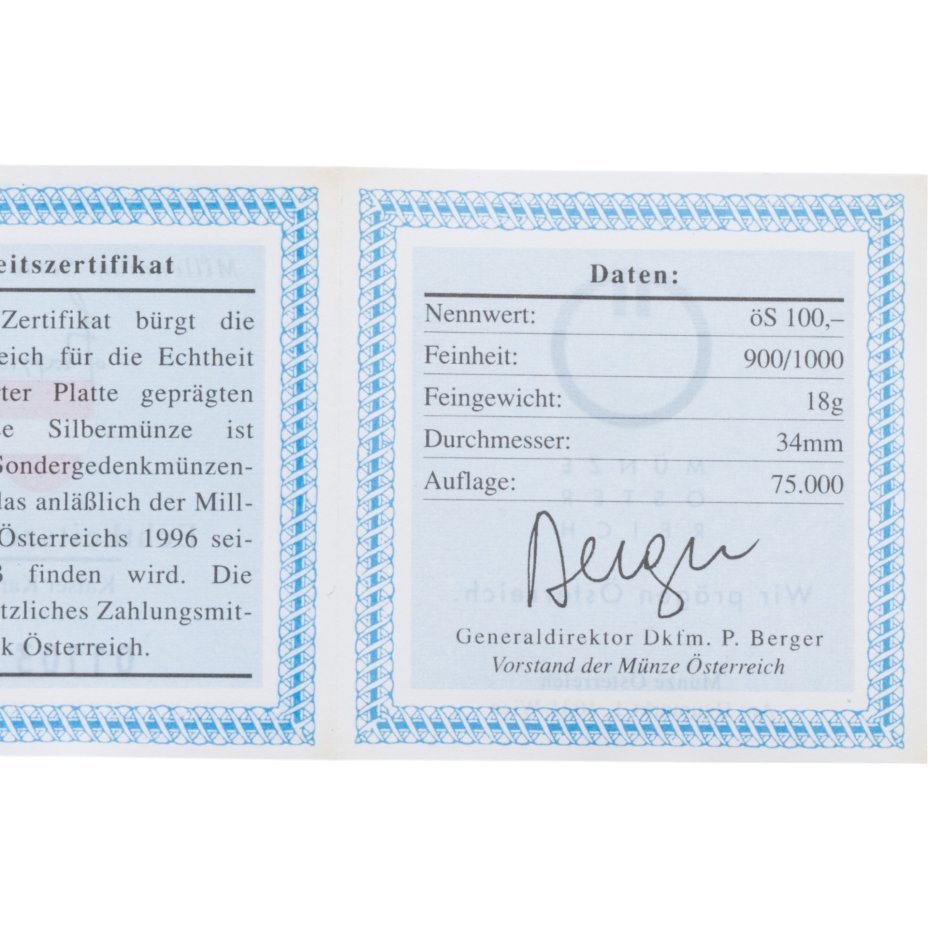 eitszertifikat
Zertifikat bürgt die
eich für die Echtheit
ter Platte geprägten
e Silbermünze ist
Sondergedenkmünzen-
das anläßlich der Mill-
Österreichs 1996 sei-
ß finden wird. Die
tzliches Zahlungsmit-
k Österreich.
Daten:
Nennwert: öS 100,–
Feinheit: 900/1000
Feingewicht: 18g
Durchmesser: 34mm
Auflage: 75.000
Berger
Generaldirektor Dkfm. P. Berger
Vorstand der Münze Österreich
MÜNZE
ÖSTER
REICH
Wir prägen Österreich.